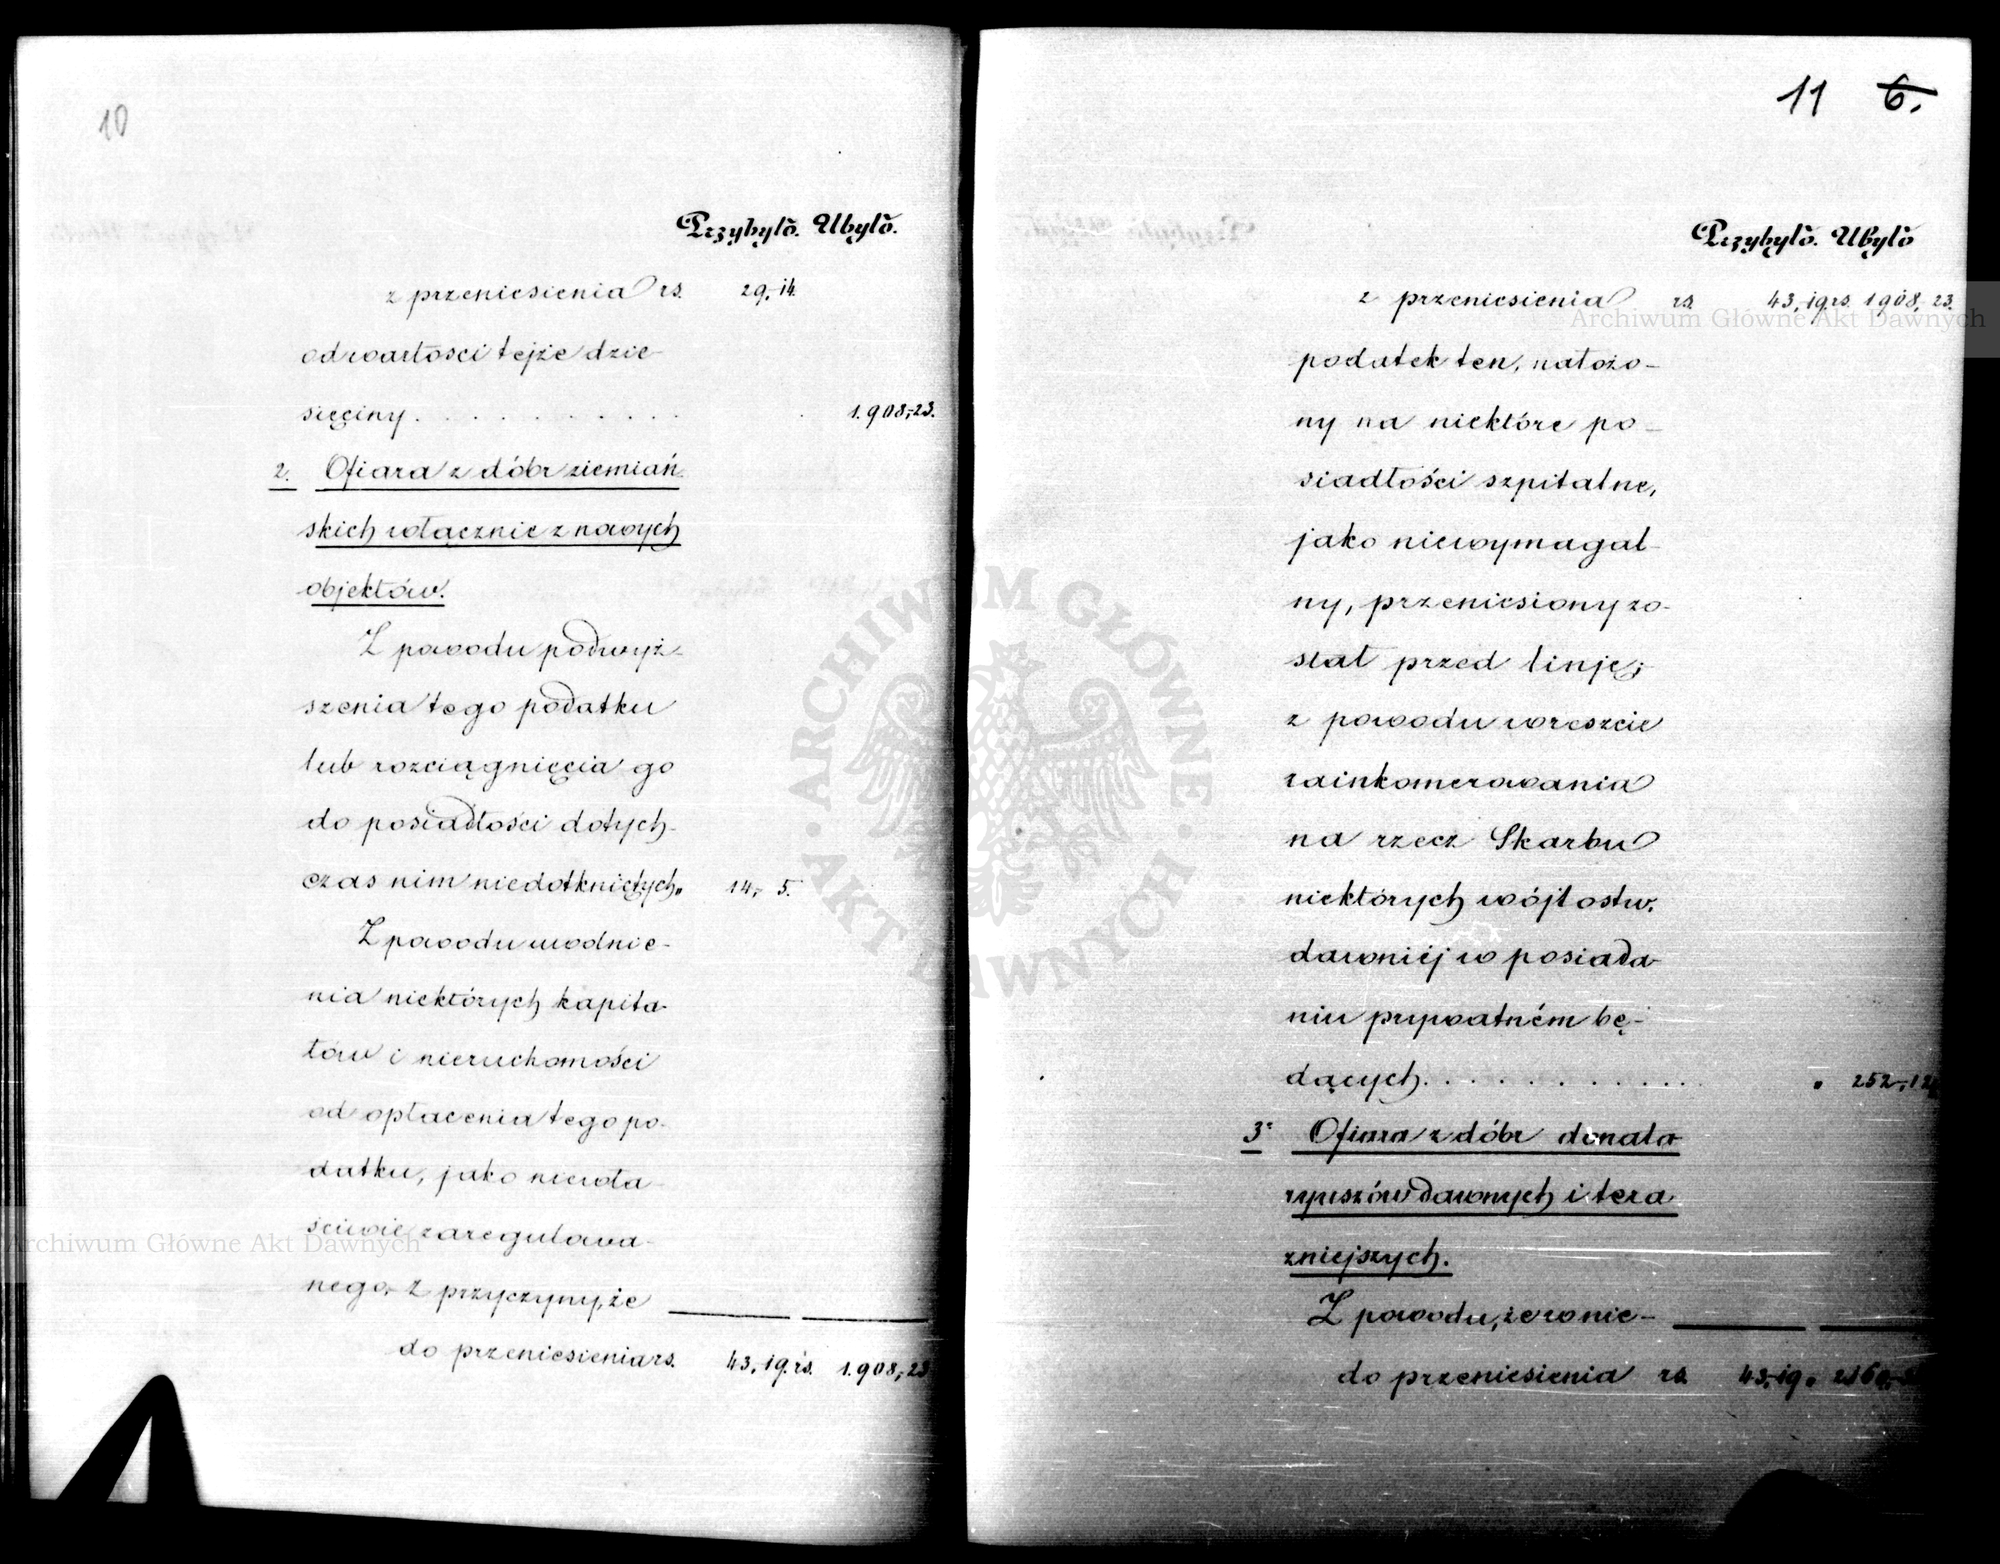 10
Przybyło. Ubyło.
z przeniesienia rs. 29,-14.
od wartości tejże dzie-
sięciny . . . . . . . . . . 1.908,-23.
2. Ofiara z dóbr ziemiań-
skich włącznie z nowych
objektów.
Z powodu podwyż-
szenia tego podatku
lub rozciągnięcia go
do posiadłości dotych-
czas nim niedotkniętych „ 14,- 5.
Z powodu uwolnie-
nia niektórych kapita-
łów i nieruchomości
od opłacenia tego po-
datku, jako niewła-
ściwie zaregulowa-
nego,- z przyczyny, że
do przeniesienia rs. 43,-19. rs. 1.908,-23
11 6.
Przybyło. Ubyło
z przeniesienia rs. 43,-19 rs. 1908,-23.
podatek ten, nałożo-
ny na niektóre po-
siadłości szpitalne,
jako niewymagal-
ny, przeniesiony zo-
stał przed linję;
z powodu wreszcie
zainkomerowania
na rzecz Skarbu
niektórych wójtostw,
dawniéj w posiada-
niu prywatném bę-
dących . . . . . . . . . . . . „ 252,-12
3. Ofiara z dóbr donata-
ryuszów dawnych i tera-
zniejszych.
Z powodu, że w nie-
do przeniesienia rs. 43,-19 „
Archiwum Główne Akt Dawnych
Archiwum Główne Akt Dawnych
ARCHIWUM GŁÓWNE AKT DAWNYCH